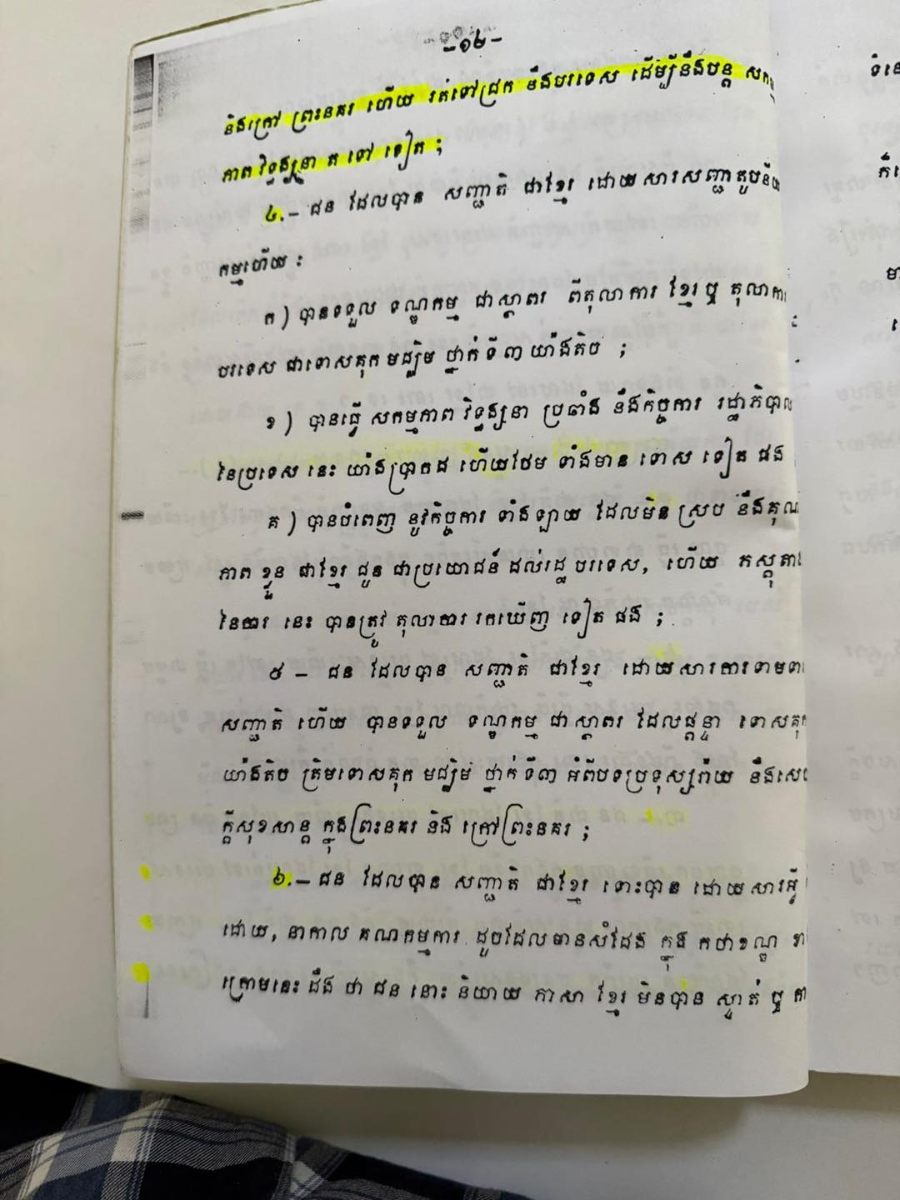 -១២-
និងក្រៅ ព្រះនគរ ហើយ រត់ទៅជ្រក នឹងបរទេស ដើម្បីនឹងបន្ត សកម្ម
ភាព វិទ្ធង្សនា ត ទៅ ទៀត ;
៤.- ជន ដែលបាន សញ្ជាតិ ជាខ្មែរ ដោយសារសញ្ជាតូបនីយ
កម្មហើយ :
ក) បានទទួល ទណ្ឌកម្ម ជាស្ថាពរ ពីតុលាការ ខ្មែរឬ តុលាការ
បរទេស ជាទោសគុក មជ្ឈិម ថ្នាក់ ទី៣ យ៉ាងតិច ;
ខ) បានធ្វើ សកម្មភាព វិទ្ធង្សនា ប្រឆាំង នឹងកិច្ចការ រដ្ឋាភិបាល
នៃប្រទេស នេះ យ៉ាងប្រាកដ ហើយថែម ទាំងមាន ទោស ទៀត ផង
គ) បានបំពេញ នូវកិច្ចការ ទាំងឡាយ ដែលមិន ស្រប នឹងគុណ
ភាព ខ្លួន ជាខ្មែរ ជូន ជាប្រយោជន៍ ដល់រដ្ឋ បរទេស, ហើយ ភស្តុតាង
នៃការ នេះ បានត្រូវ តុលាការ រកឃើញ ទៀត ផង ;
៥ - ជន ដែលបាន សញ្ជាតិ ជាខ្មែរ ដោយសារការទាមទារ
សញ្ជាតិ ហើយ បានទទួល ទណ្ឌកម្ម ជាស្ថាពរ ដែលផ្តន្ទា ទោសគុក
យ៉ាងតិច ត្រឹមទោសគុក មជ្ឈិម ថ្នាក់ ទី៣ អំពីបទប្រទុស្សរ៉ាយ នឹងសេច
ក្តីសុខសាន្ត ក្នុងព្រះនគរ និង ក្រៅព្រះនគរ ;
៦.- ជន ដែលបាន សញ្ជាតិ ជាខ្មែរ ទោះបាន ដោយសារអ្វី
ដោយ, នាកាល គណកម្មការ ដូចដែលមានសំដែង ក្នុង កថាខណ្ឌ
ក្រោមនេះ ដឹង ថា ជន នោះ និយាយ ភាសា ខ្មែរ មិនបាន ស្ទាត់ ឬ